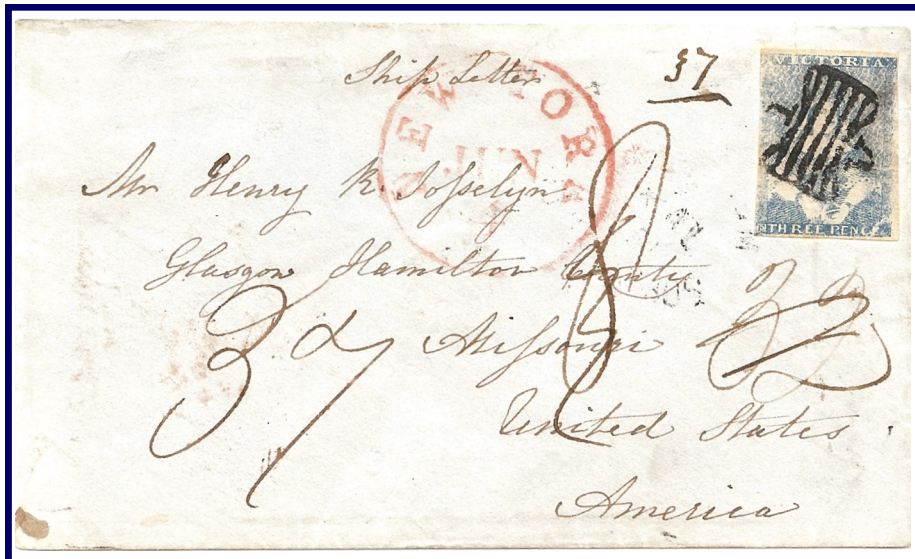 Ship Letter
37
VICTORIA
THREE PENCE
NEW YORK
JUN
Mr Henry R. Josselyn
Glasgow Hamilton County
Missouri
United States
America
37
8